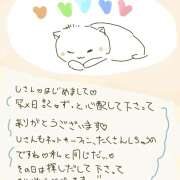 Uさん♡はじめまして♡
写メ日記みず、と心配して下さって
ありがとうございます♡
Uさんもネットサーフィン、たくさんしちゃうの
ですね♡私と同じだ..♡
その日は探しだして下さって